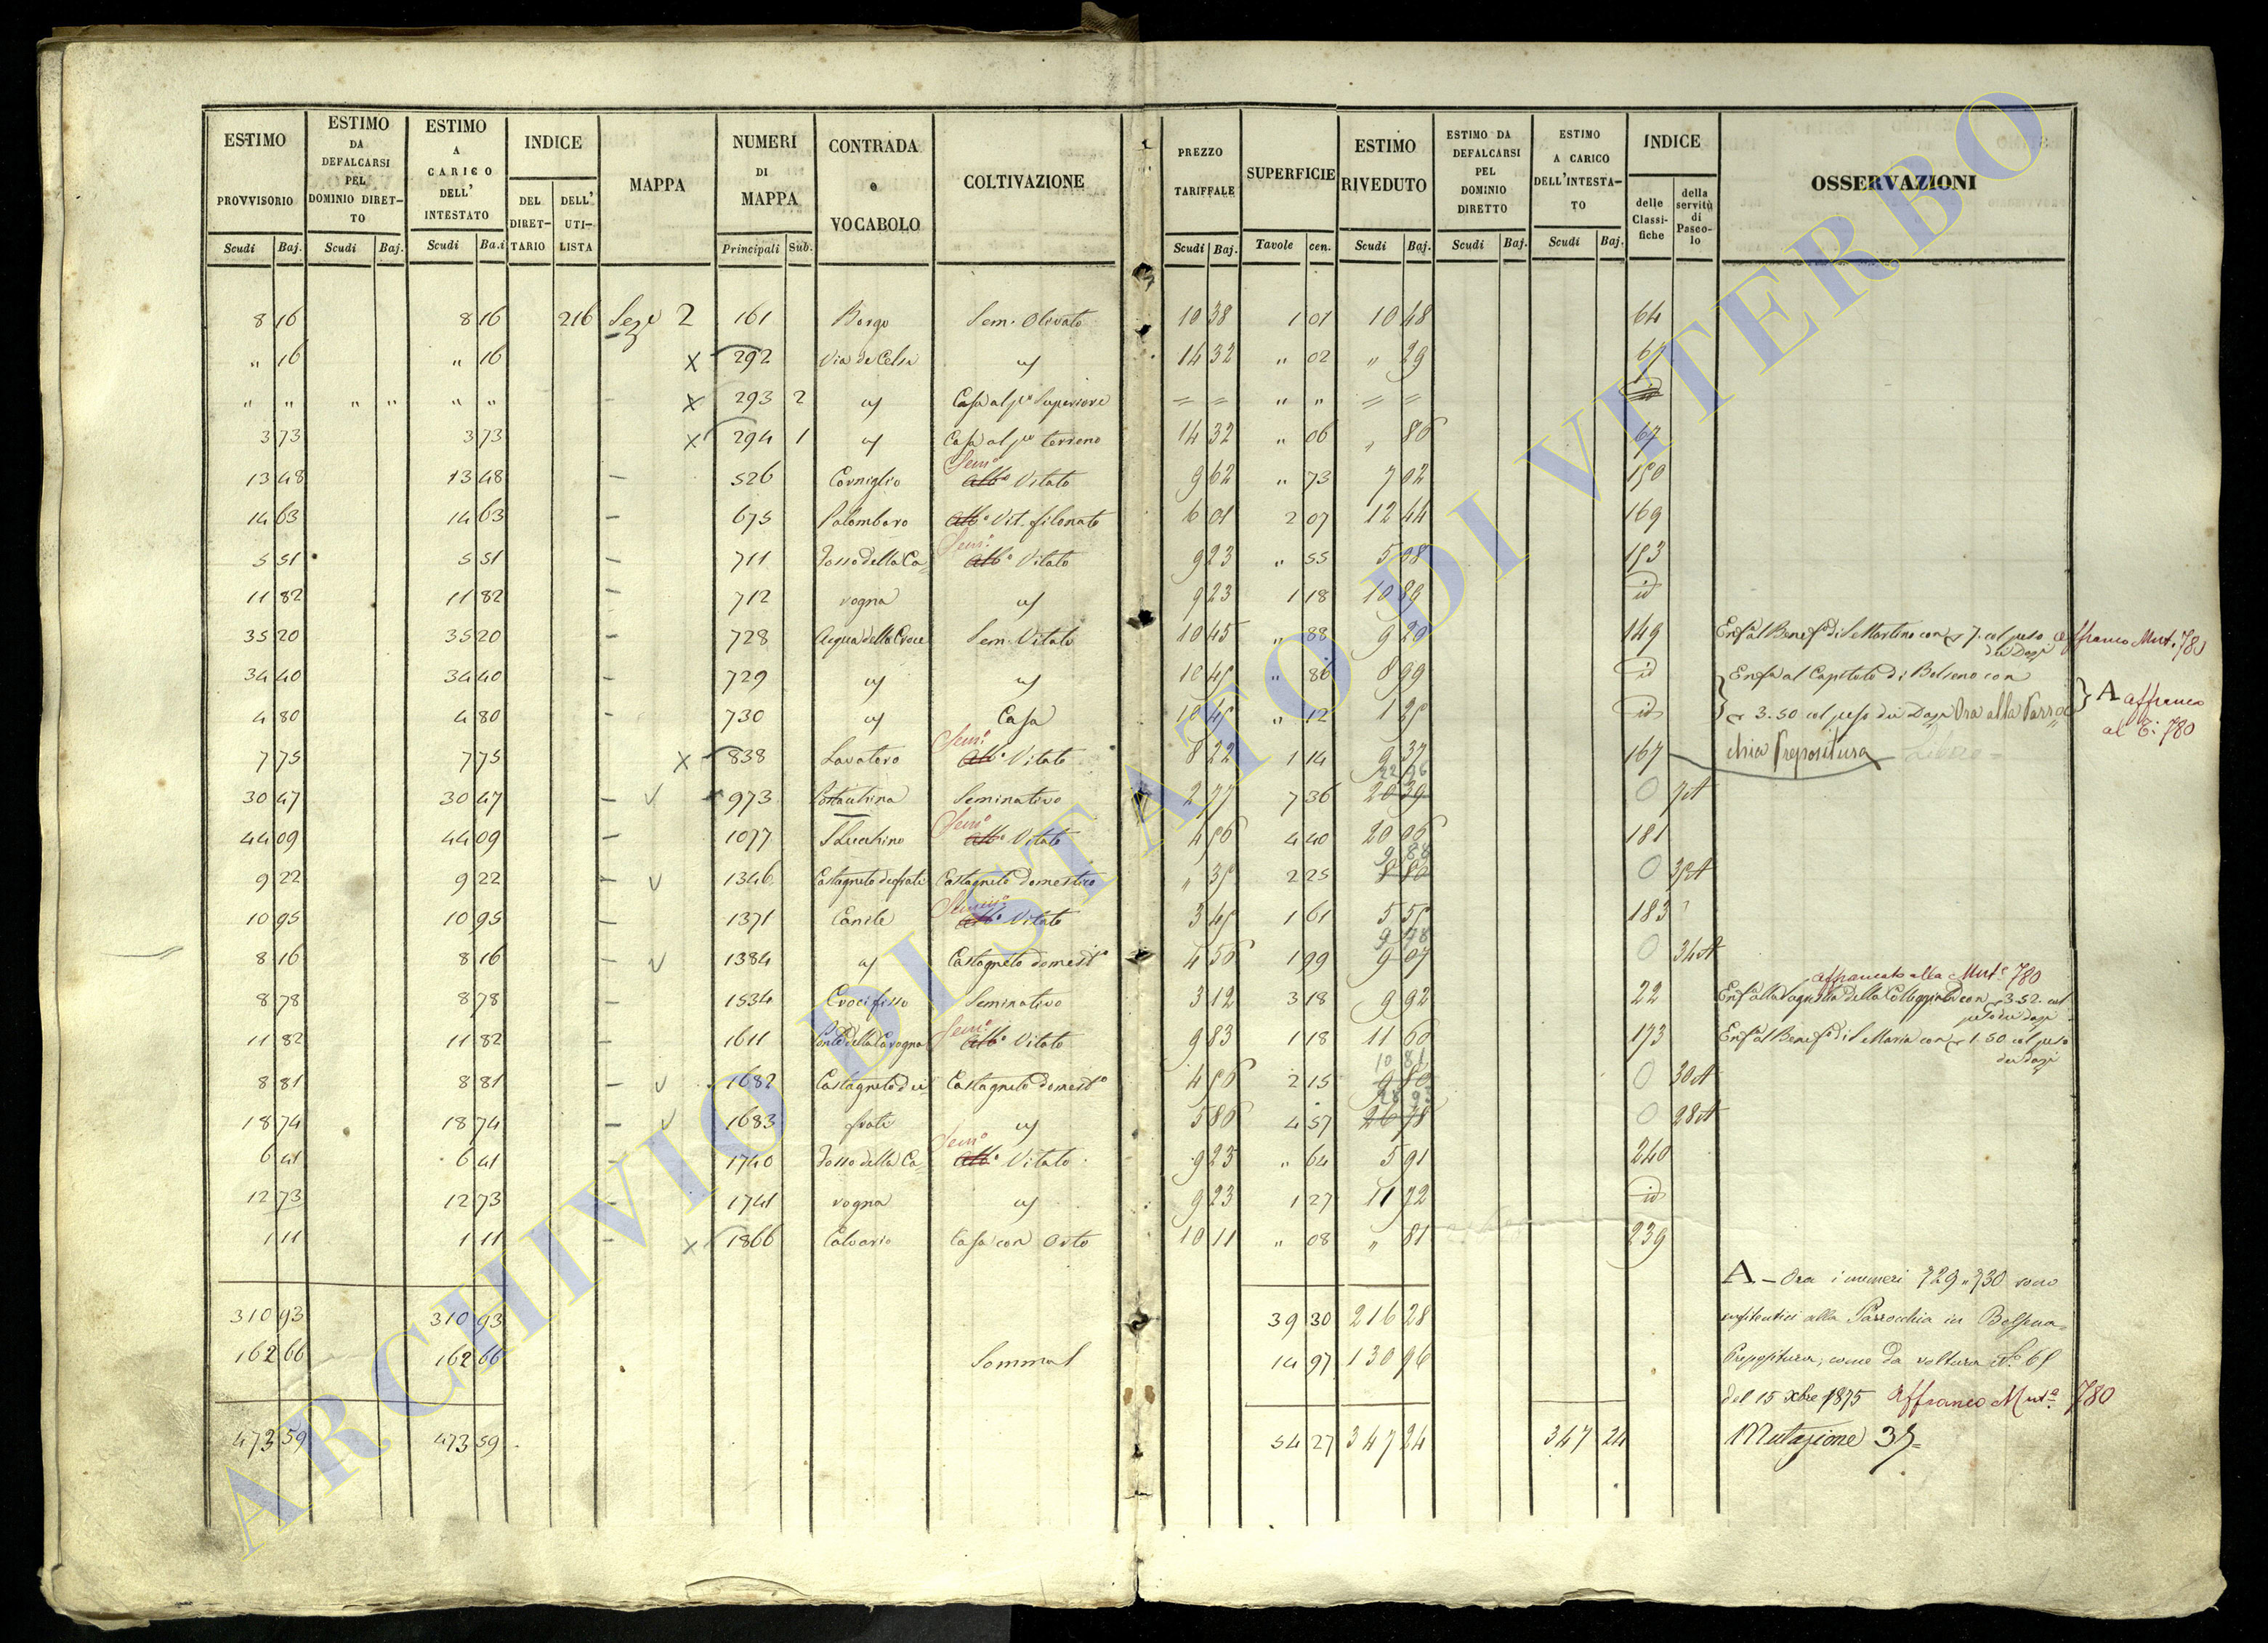 ESTIMO PROVVISORIO | ESTIMO DA DEFALCARSI PEL DOMINIO DIRETTO | ESTIMO A CARICO DELL' INTESTATO | INDICE | MAPPA | NUMERI DI MAPPA | CONTRADA e VOCABOLO | COLTIVAZIONE | PREZZO TARIFFALE | SUPERFICIE | ESTIMO RIVEDUTO | ESTIMO DA DEFALCARSI PEL DOMINIO DIRETTO | ESTIMO A CARICO DELL'INTESTA-TO | INDICE | OSSERVAZIONI
DEL DIRET-TARIO | DELL' UTI-LISTA | delle Classi-fiche | della servitù di Pasco-lo
Scudi | Baj. | Scudi | Baj. | Scudi | Ba.i | Principali | Sub. | Scudi | Baj. | Tavole | cen. | Scudi | Baj. | Scudi | Baj. | Scudi | Baj.
8 16 | 8 16 | 216 | Sez.e 2 | 161 | Borgo | Sem. Olivato | 10 38 | 1 01 | 10 48 | 64
" 16 | " 16 | x | 292 | Via de Celsi | " | 14 32 | " 02 | " 29 | 67
" " | " " | " " | x | 293 | 2 | " | Casa al p.o Superiore | = = | " " | = =
3 73 | 3 73 | x | 294 | 1 | " | Casa al p.o terreno | 14 32 | " 06 | " 86 | 67
13 48 | 13 48 | – | 526 | Corniglio | Sem.o Alb.o Vitato | 9 62 | " 73 | 7 02 | 150
14 63 | 14 63 | – | 675 | Palombaro | Alb.o Vit. filonato | 6 01 | 2 07 | 12 44 | 169
5 51 | 5 51 | – | 711 | Fosso della Ca- | Sem.o Alb.o Vitato | 9 23 | " 55 | 5 08 | 153
11 82 | 11 82 | – | 712 | vogna | " | 9 23 | 1 18 | 10 89 | id
35 20 | 35 20 | – | 728 | Acqua della Croce | Sem. Vitato | 10 45 | " 88 | 9 20 | 149 | Enf.a al Benef.o di S. Martino con 7. col peso dei Dazi affranco Mut. 780
34 40 | 34 40 | – | 729 | " | " | 10 45 | " 86 | 8 99 | id | Enf.a al Capitolo di Bolseno con
4 80 | 4 80 | – | 730 | " | Casa | 10 45 | " 12 | 1 25 | id | 3.50 col peso dei Dazi Ora alla Parroc A affranco al 780
7 75 | 7 75 | x | 838 | Lavatoro | Sem.o Alb.o Vitato | 8 22 | 1 14 | 9 37 | 167 | chia Prepositura Libero
30 47 | 30 47 | – v | 973 | Seminativo | 2 77 | 7 36 | 20 39 | 22 76 | 0 | 7A
44 09 | 44 09 | – | 1077 | S Lucchino | Sem.o Alb.o Vitato | 4 56 | 4 40 | 20 06 | 181
9 22 | 9 22 | – v | 1346 | Castagneto dei frati | Castagneto domestico | " 35 | 2 25 | 8 86 | 9 88 | 0
10 95 | 10 95 | – | 1371 | Canile | Sem.o Alb.o Vitato | 3 45 | 1 61 | 5 55 | 183
8 16 | 8 16 | – v | 1384 | " | Castagneto domest.o | 4 56 | 1 99 | 9 07 | 9 78 | 0 | 34A
8 78 | 8 78 | – | 1534 | Crocifisso | Seminativo | 3 12 | 3 18 | 9 92 | 22 | affrancato alla Mut.e 780 Enf.a alla Sagrestia della Collegiata con 3.52. col peso dei dazi
11 82 | 11 82 | – | 1611 | Ponte della Cavogna | Sem.o Alb.o Vitato | 9 83 | 1 18 | 11 60 | 173 | Enf.a al Benef.o di S. Maria con 1.50 col peso dei dazi
8 81 | 8 81 | – v | 1682 | Castagneto dei | Castagneto domest.o | 4 56 | 2 15 | 9 80 | 10 81 | 0 | 30A
18 74 | 18 74 | – v | 1683 | frati | " | 5 86 | 4 57 | 26 78 | 0 | 28A
6 41 | 6 41 | – | 1740 | Fosso della Ca- | Sem.o Alb.o Vitato | 9 23 | " 64 | 5 91 | 240
12 73 | 12 73 | – | 1741 | vogna | " | 9 23 | 1 27 | 11 72 | id
1 11 | 1 11 | – x | 1866 | Calvario | Casa con Orto | 10 11 | " 08 | " 81 | 239
A – Ora i numeri 729 " 730 sono
310 93 | 310 93 | 39 30 | 216 28 | enfiteutici alla Parrocchia in Bolsena
162 66 | 162 66 | Somma | 14 97 | 130 96 | Prepositura, come da voltura N.o 65
del 15 Xbre 1875 Affranco Mut.a 780
473 59 | 473 59 | 54 27 | 347 24 | 347 24 | Mutazione 35=
ARCHIVIO DI STATO DI VITERBO